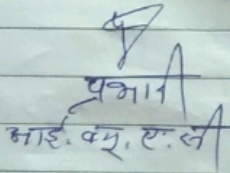 प्रभारी
आई. क्यू. ए. सी